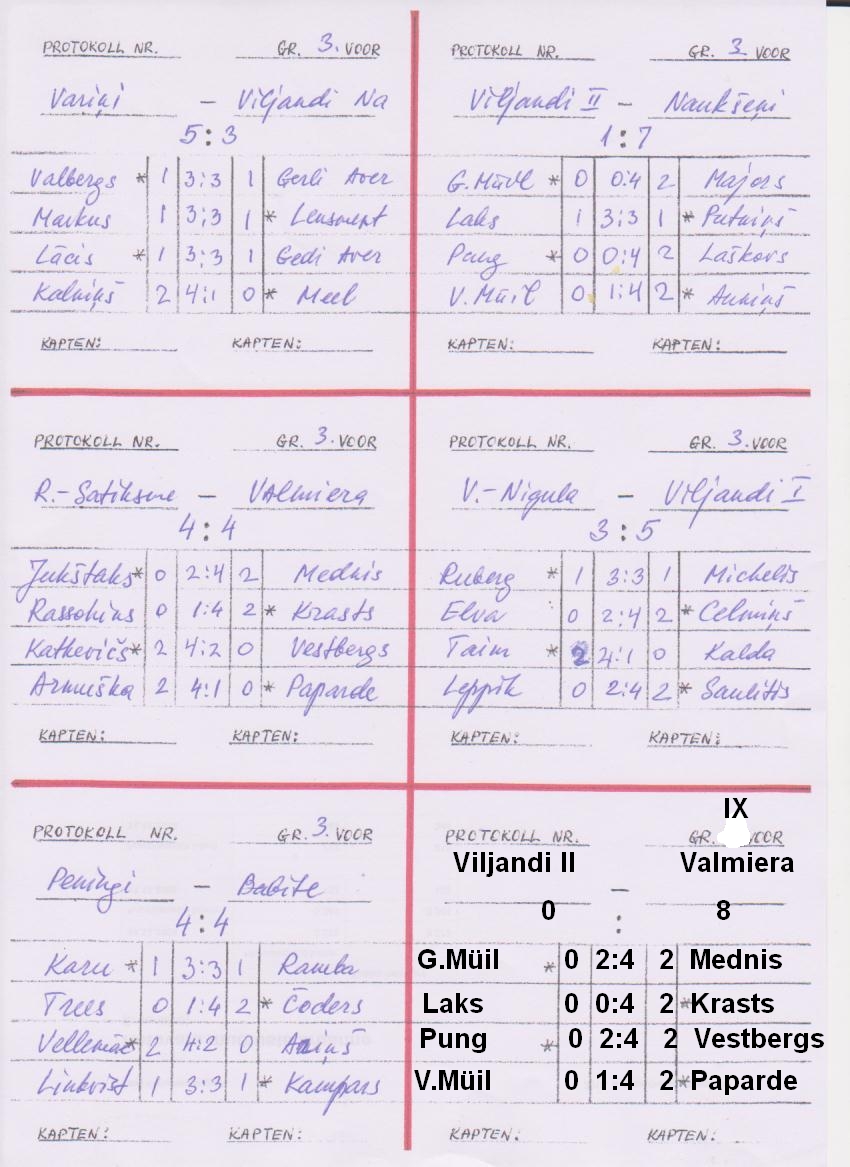 PROTOKOLL NR. GR. 3. VOOR
Variņi – Viljandi Na
5:3
Valbergs * 1 3:3 1 Gerli Aver
Markus 1 3:3 1 * Lensment
Lācis * 1 3:3 1 Gedi Aver
Kalniņš 2 4:1 0 * Meel
KAPTEN: KAPTEN:
PROTOKOLL NR. GR. 3 VOOR
Viljandi II – Naukšeņi
1:7
G.Müil * 0 0:4 2 Majors
Laks 1 3:3 1 * Putniņš
Pung * 0 0:4 2 Laškovs
V.Müil 0 1:4 2 * Auniņš
KAPTEN: KAPTEN:
PROTOKOLL NR. GR. 3. VOOR
R.-Satiksme – Valmiera
4:4
Jukštaks * 0 2:4 2 Mednis
Rassohins 0 1:4 2 * Krasts
Katkevičš * 2 4:2 0 Vestbergs
Armuška 2 4:1 0 * Paparde
KAPTEN: KAPTEN:
PROTOKOLL NR. GR. 3. VOOR
V.-Nigula – Viljandi I
3:5
Ruberg * 1 3:3 1 Michelis
Elva 0 2:4 2 * Celmiņš
Taim * 2 4:1 0 Kalda
Leppik 0 2:4 2 * Saulītis
KAPTEN: KAPTEN:
PROTOKOLL NR. GR. 3. VOOR
Peningi – Babīte
4:4
Karu * 1 3:3 1 Ramba
Trees 0 1:4 2 * Čoders
Vellemäe * 2 4:2 0
Linkvist 1 3:3 1 * Kampars
KAPTEN: KAPTEN:
IX
PROTOKOLL NR. GR. VOOR
Viljandi II – Valmiera
0 : 8
G.Müil * 0 2:4 2 Mednis
Laks 0 0:4 2 * Krasts
Pung * 0 2:4 2 Vestbergs
V.Müil 0 1:4 2 * Paparde
KAPTEN: KAPTEN: